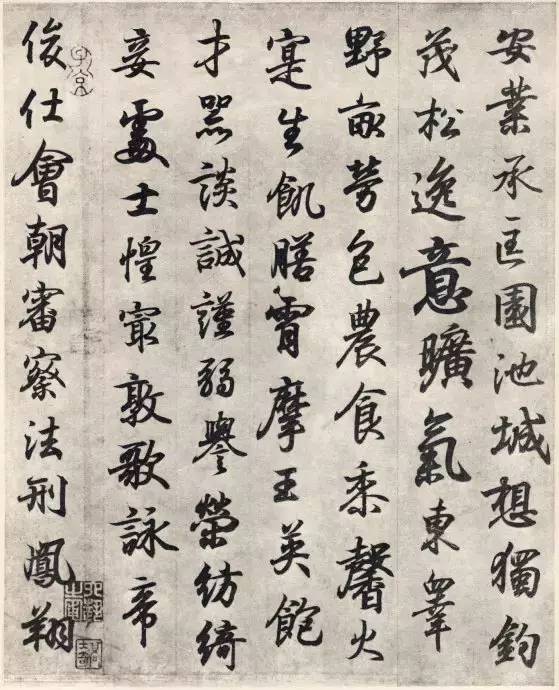 安業承匡園池城想獨鈞
茂松逸意曠氣東羣
野畝勞色農食黍馨火
寔生飢膳霄摩王英飽
才器談誠謹弱譽榮紡綺
妾處士惶㝡敦歌詠帝
俊仕會朝審察法刑鳳翔
子京